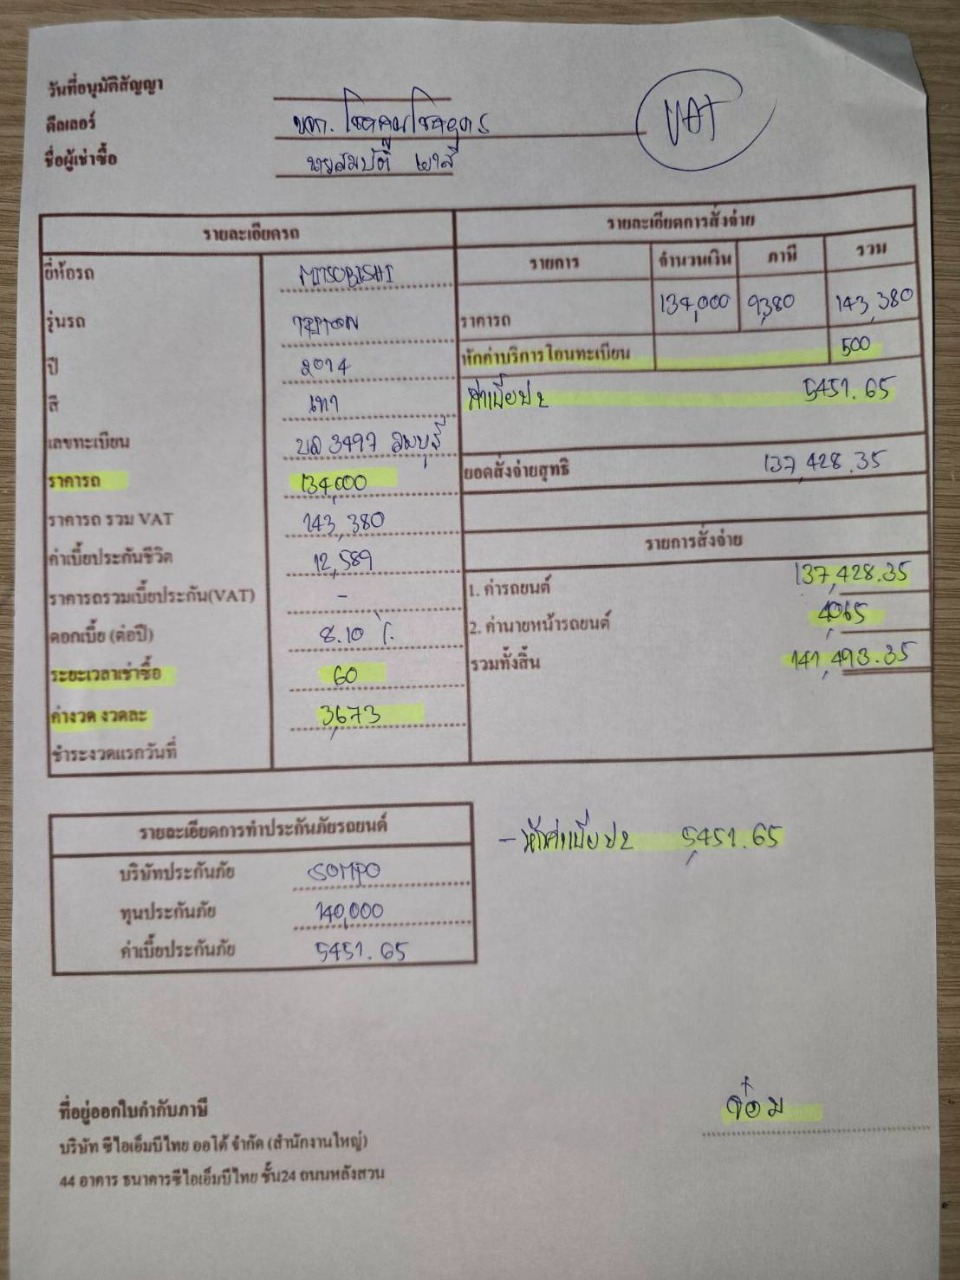 วันที่อนุมัติสัญญา
ดีลเลอร์ บจก. โชคคูณโชคยุคร
VAT
ชื่อผู้เช่าซื้อ นายสมบัติ
รายละเอียดรถ
ยี่ห้อรถ MITSUBISHI
รุ่นรถ TRITON
ปี 2014
สี เทา
เลขทะเบียน บล 3497 ลพบุรี
ราคารถ 134,000
ราคารถ รวม VAT 143,380
ค่าเบี้ยประกันชีวิต 12,589
ราคารถรวมเบี้ยประกัน(VAT) -
ดอกเบี้ย (ต่อปี) 8.10 %
ระยะเวลาเช่าซื้อ 60
ค่างวด งวดละ 3673
ชำระงวดแรกวันที่
รายละเอียดการสั่งจ่าย
รายการ จำนวนเงิน ภาษี รวม
ราคารถ 134,000 9,380 143,380
หักค่าบริการโอนทะเบียน 500
ค่าเบี้ยป2 5451.65
ยอดสั่งจ่ายสุทธิ 137,428.35
รายการสั่งจ่าย
1. ค่ารถยนต์ 137,428.35
2. ค่านายหน้ารถยนต์ 4,065
รวมทั้งสิ้น 141,493.35
รายละเอียดการทำประกันภัยรถยนต์
บริษัทประกันภัย SOMPO
ทุนประกันภัย 140,000
ค่าเบี้ยประกันภัย 5451.65
- หักค่าเบี้ยป2 5,451.65
จ๋อม
ที่อยู่ออกใบกำกับภาษี
บริษัท ซีไอเอ็มบีไทย ออโต้ จำกัด (สำนักงานใหญ่)
44 อาคาร ธนาคารซีไอเอ็มบีไทย ชั้น24 ถนนหลังสวน